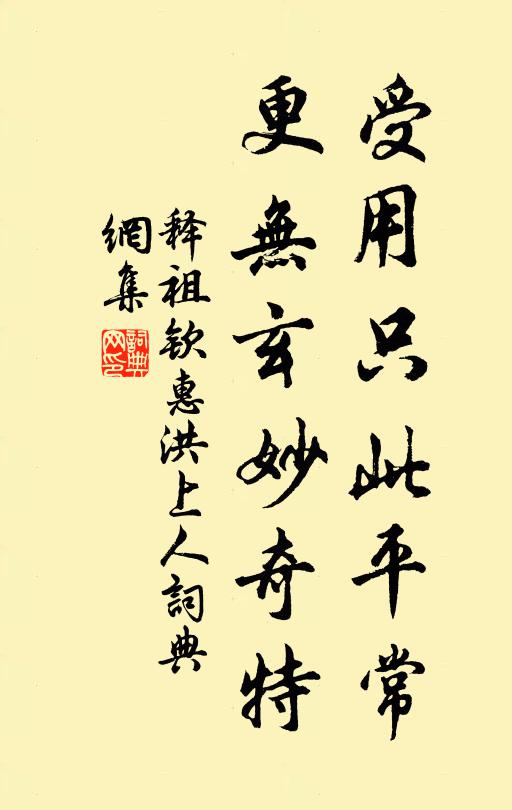 受用只此平常
更無玄妙奇特
释祖钦惠洪上人詞典
網集
詞典
网印